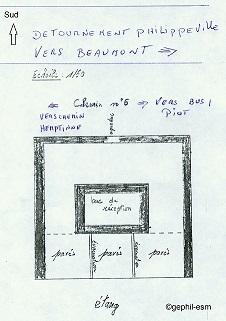 Sud
DETOURNEMENT PHILIPPEVILLE
VERS BEAUMONT ⇒
Echelle : 1/50
⇐ Chemin n°6 ⇒ VERS BUS /
VERS CHEMIN PIOT
HEMPTINNE
bac de
réception
parés parés parés
étang
©gephil-esm